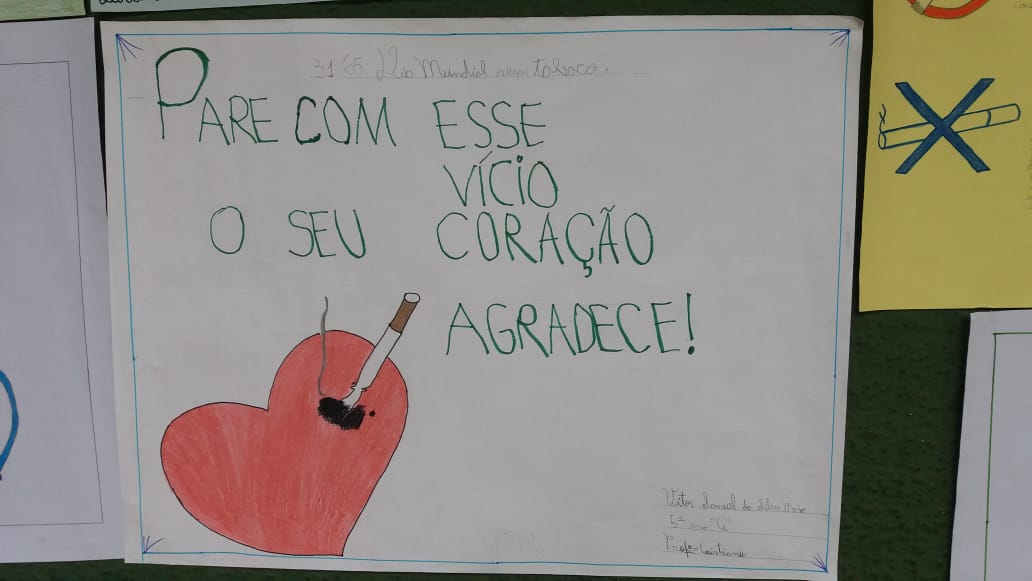 31/05 Dia Mundial sem tabaco.
PARE COM ESSE
VÍCIO
O SEU CORAÇÃO
AGRADECE!
Vitor Samuel da Silva
5º ano "C"
Profª= Cristiane